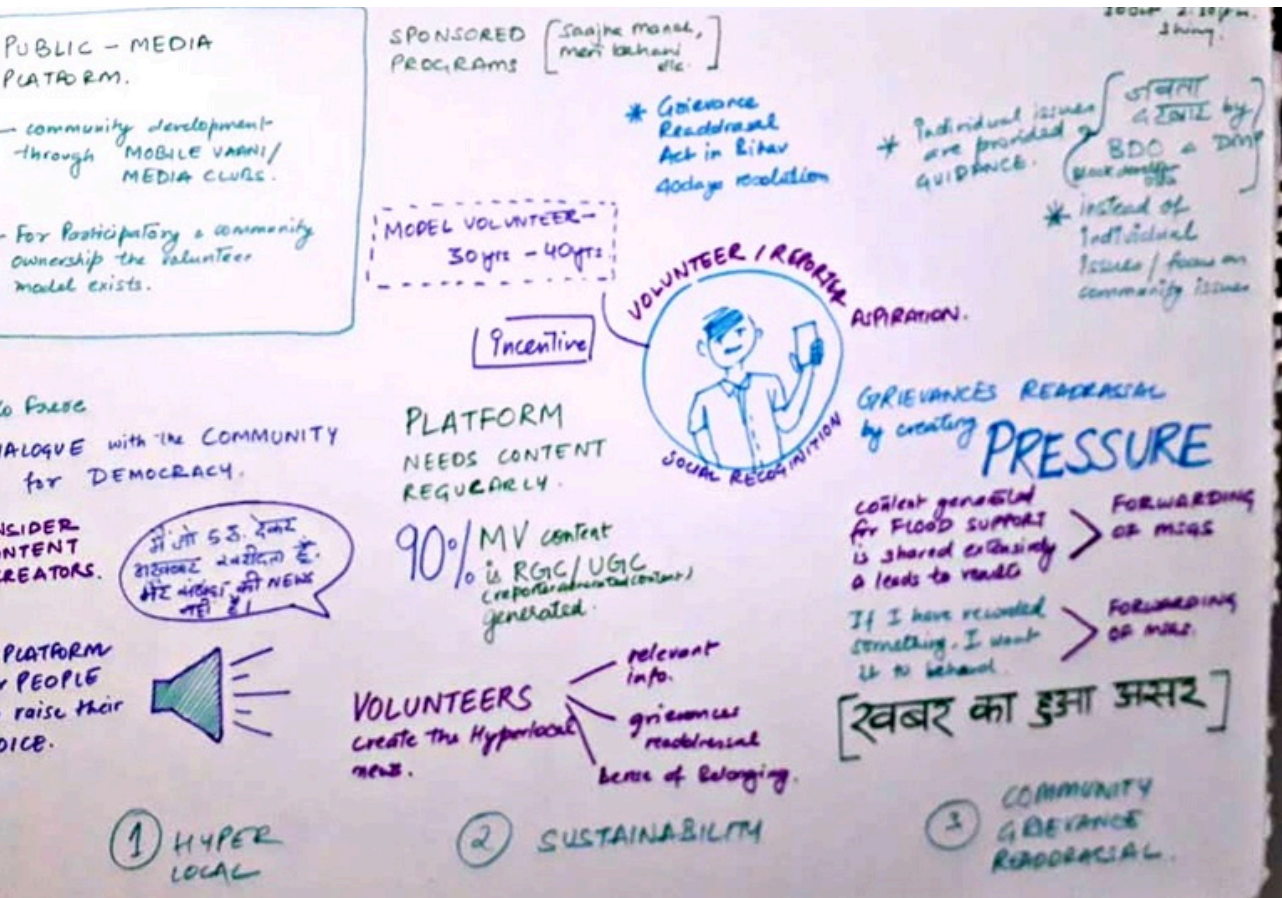 PUBLIC - MEDIA
PLATFORM.
- community development
through MOBILE VAANI/
MEDIA CLUBS.
- For Participatory & community
ownership the volunteer
model exists.
SPONSORED
PROGRAMS
[Saajha manch,
meri kahani
etc.]
* Grievance
Readdrasal
Act in Bihar
40days resolution
* Individual issues
are provided
GUIDANCE.
जनता
दरबार by
BDO &
* instead of
Individual
Issues / focus on
community issues
MODEL VOLUNTEER -
30yrs - 40yrs
Incentive
VOLUNTEER / REPORTER
ASPIRATION.
SOCIAL RECOGINITION
DIALOGUE with the COMMUNITY
for DEMOCRACY.
CONTENT
CREATORS.
मैं जो 5 रु. देकर
अखबार खरीदता हूँ.
की NEWS
नहीं है।
PLATFORM
PEOPLE
raise their
VOICE.
PLATFORM
NEEDS CONTENT
REGULARLY.
90% MV content
is RGC/UGC
generated.
VOLUNTEERS
create the Hyperlocal
news.
relevant
info.
grievances
readdressal
Sense of Belonging.
GRIEVANCES READRASSAL
by creating PRESSURE
content generated
for FLOOD SUPPORT
is shared extensively
& leads to results
FORWARDING
OF MSGS
If I have recorded
something. I want
it to beheard.
FORWARDING
OF MSGS.
[खबर का हुआ असर]
1 HYPER
LOCAL
2 SUSTAINABILITY
3 COMMUNITY
GRIEVANCE
READDRASSAL.